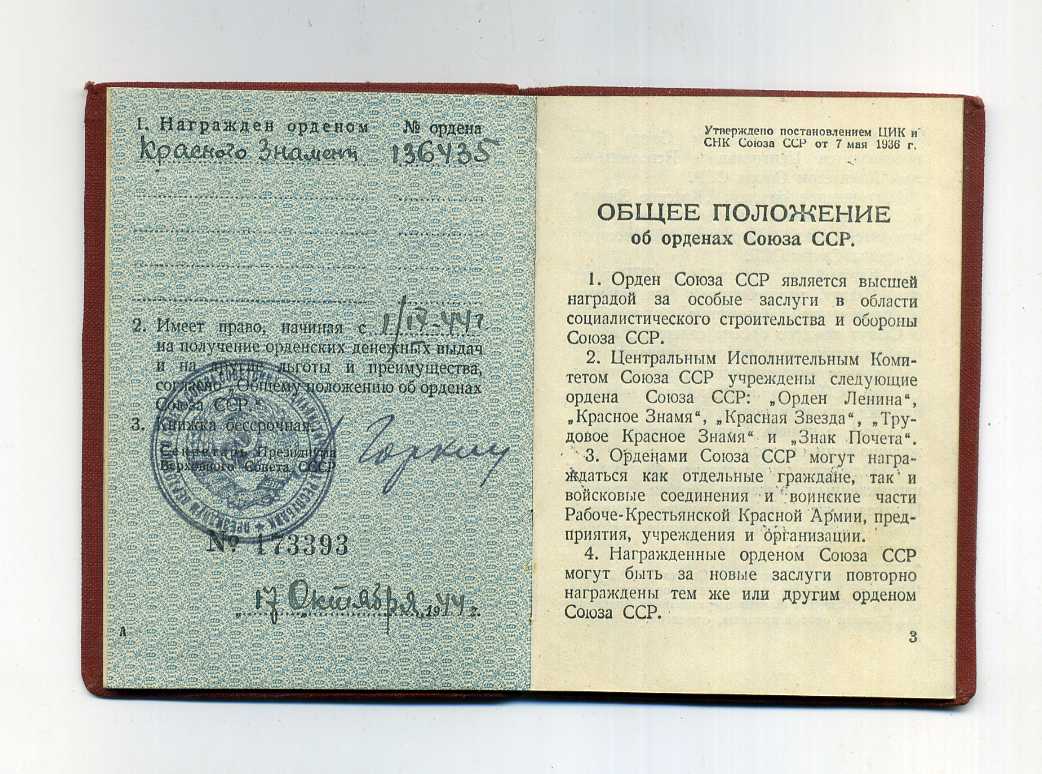 1. Награжден орденом № ордена
Красного Знамени 136435
2. Имеет право, начиная с 1/IV-44г
на получение орденских денежных выдач
и на другие льготы и преимущества,
согласно „Общему положению об орденах
Союза ССР“.
3. Книжка бессрочная.
Секретарь Президиума
Верховного Совета СССР
Горкин
№ 173393
„17 Октября 1944 г.
А
Утверждено постановлением ЦИК и
СНК Союза ССР от 7 мая 1936 г.
ОБЩЕЕ ПОЛОЖЕНИЕ
об орденах Союза ССР.
1. Орден Союза ССР является высшей
наградой за особые заслуги в области
социалистического строительства и обороны
Союза ССР.
2. Центральным Исполнительным Коми-
тетом Союза ССР учреждены следующие
ордена Союза ССР: „Орден Ленина“,
„Красное Знамя“, „Красная Звезда“, „Тру-
довое Красное Знамя“ и „Знак Почета“.
3. Орденами Союза ССР могут награ-
ждаться как отдельные граждане, так и
войсковые соединения и воинские части
Рабоче-Крестьянской Красной Армии, пред-
приятия, учреждения и организации.
4. Награжденные орденом Союза ССР
могут быть за новые заслуги повторно
награждены тем же или другим орденом
Союза ССР.
3